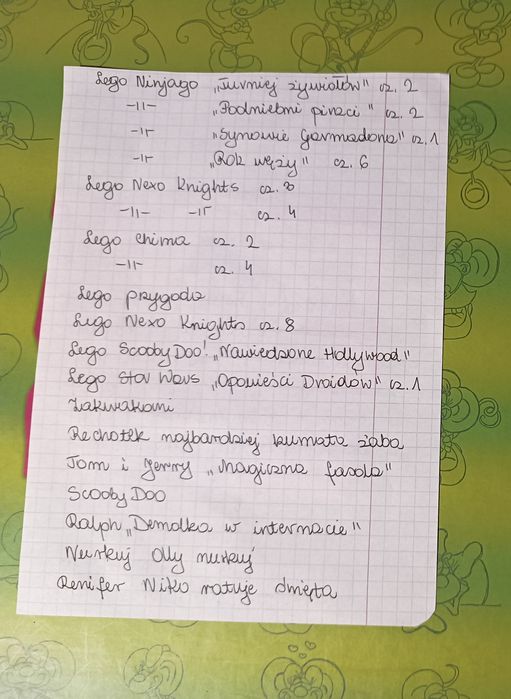 Lego Ninjago „Turniej żywiołów" cz. 2
-11- „Podniebni piraci" cz. 2
-11- „Synowie Garmadona" cz. 1
-11- „Rok węży" cz. 6
Lego Nexo Knights cz. 8
-11- -11- cz. 4
Lego Chima cz. 2
-11- cz. 4
Lego przygoda
Lego Nexo Knights cz. 8
Lego Scooby Doo! „Nawiedzone Hollywood"
Lego Star Wars „Opowieści Droidów" cz. 1
Zakwakani
Rechotek najbardziej kumata żaba
Tom i Jerry „Magiczna fasola"
Scooby Doo
Ralph „Demolka w internecie"
Nurkuj Olly nurkuj
Renifer Niko ratuje święta